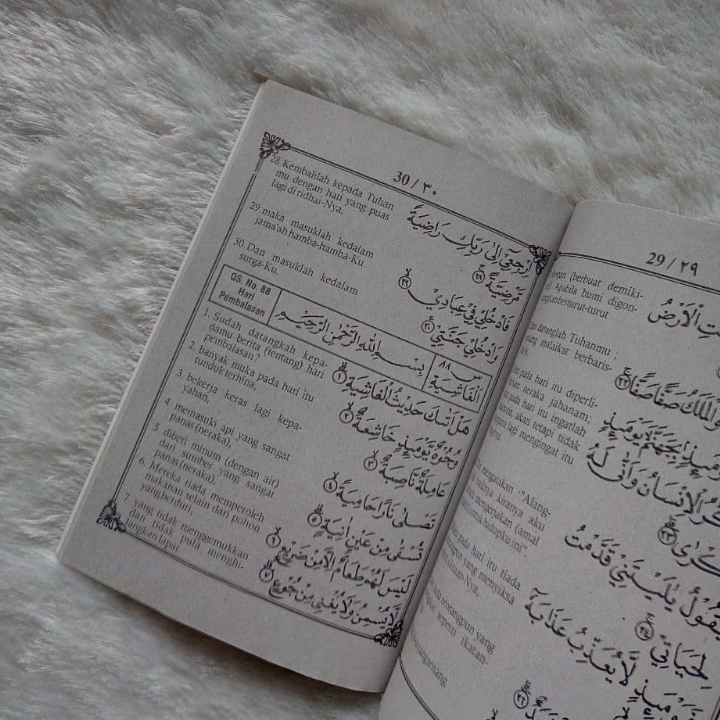 30 / ٣٠
28. Kembahlah kepada Tuhan
mu dengan hati yang puas
lagi di ridhai-Nya,
29 maka masuklah kedalam
jama'ah hamba-hamba-Ku
30. Dan masuklah kedalam
surga-Ku.
ارْجِعِيْٓ اِلٰى رَبِّكِ رَاضِيَةً
مَّرْضِيَّةً ۚ ٢٨
فَادْخُلِيْ فِيْ عِبَادِيْ ۙ ٢٩
وَادْخُلِيْ جَنَّتِيْ ٣٠
QS. No. 88
Hari
Pembalasan
بِسْمِ اللّٰهِ الرَّحْمٰنِ الرَّحِيْمِ
٨٨
الْغَاشِيَة
1. Sudah datangkah kepa-
damu berita (tentang) hari
pembalasan?
2. banyak muka pada hari itu
tunduk terhina,
3. bekerja keras lagi kepa-
yahan,
4. memasuki api yang sangat
panas (neraka),
5. diberi minum (dengan air)
dari sumber yang sangat
panas (neraka),
6. Mereka tiada memperoleh
makanan selain dari pohon
yang berduri,
7. yang tidak menggemukkan
dan tidak pula menghi-
langkan lapar
هَلْ اَتٰىكَ حَدِيْثُ الْغَاشِيَةِ ۗ ١
وُجُوْهٌ يَّوْمَىِٕذٍ خَاشِعَةٌ ۙ ٢
عَامِلَةٌ نَّاصِبَةٌ ۙ ٣
تَصْلٰى نَارًا حَامِيَةً ۙ ٤
تُسْقٰى مِنْ عَيْنٍ اٰنِيَةٍ ۗ ٥
لَيْسَ لَهُمْ طَعَامٌ اِلَّا مِنْ ضَرِيْعٍ ۙ ٦
لَّا يُسْمِنُ وَلَا يُغْنِيْ مِنْ جُوْعٍ ۗ ٧
29 / ٢٩
(berbuat demiki-
Apabila bumi digon-
berturut-turut
datanglah Tuhanmu
malaikat berbaris-
pada hari itu diperli-
neraka jahanam,
pada hari itu ingatlah
akan tetapi tidak
lagi mengingat itu
mengatakan :"Alang-
baiknya kiranya aku
mengerjakan (amal
hidupku ini"
pada hari itu tiada
yang menyiksa
seorangpun yang
seperti ikatan-
الْاَرْضُ
وَالْمَلَكُ صَفًّا صَفًّا ۚ ٢٢
بِجَهَنَّمَ يَوْمَىِٕذٍ
الْاِنْسَانُ وَاَنّٰى لَهُ
٢٣
يَقُوْلُ يٰلَيْتَنِيْ قَدَّمْتُ
لِحَيَاتِيْ ۚ ٢٤
لَّا يُعَذِّبُ عَذَابَهٗٓ